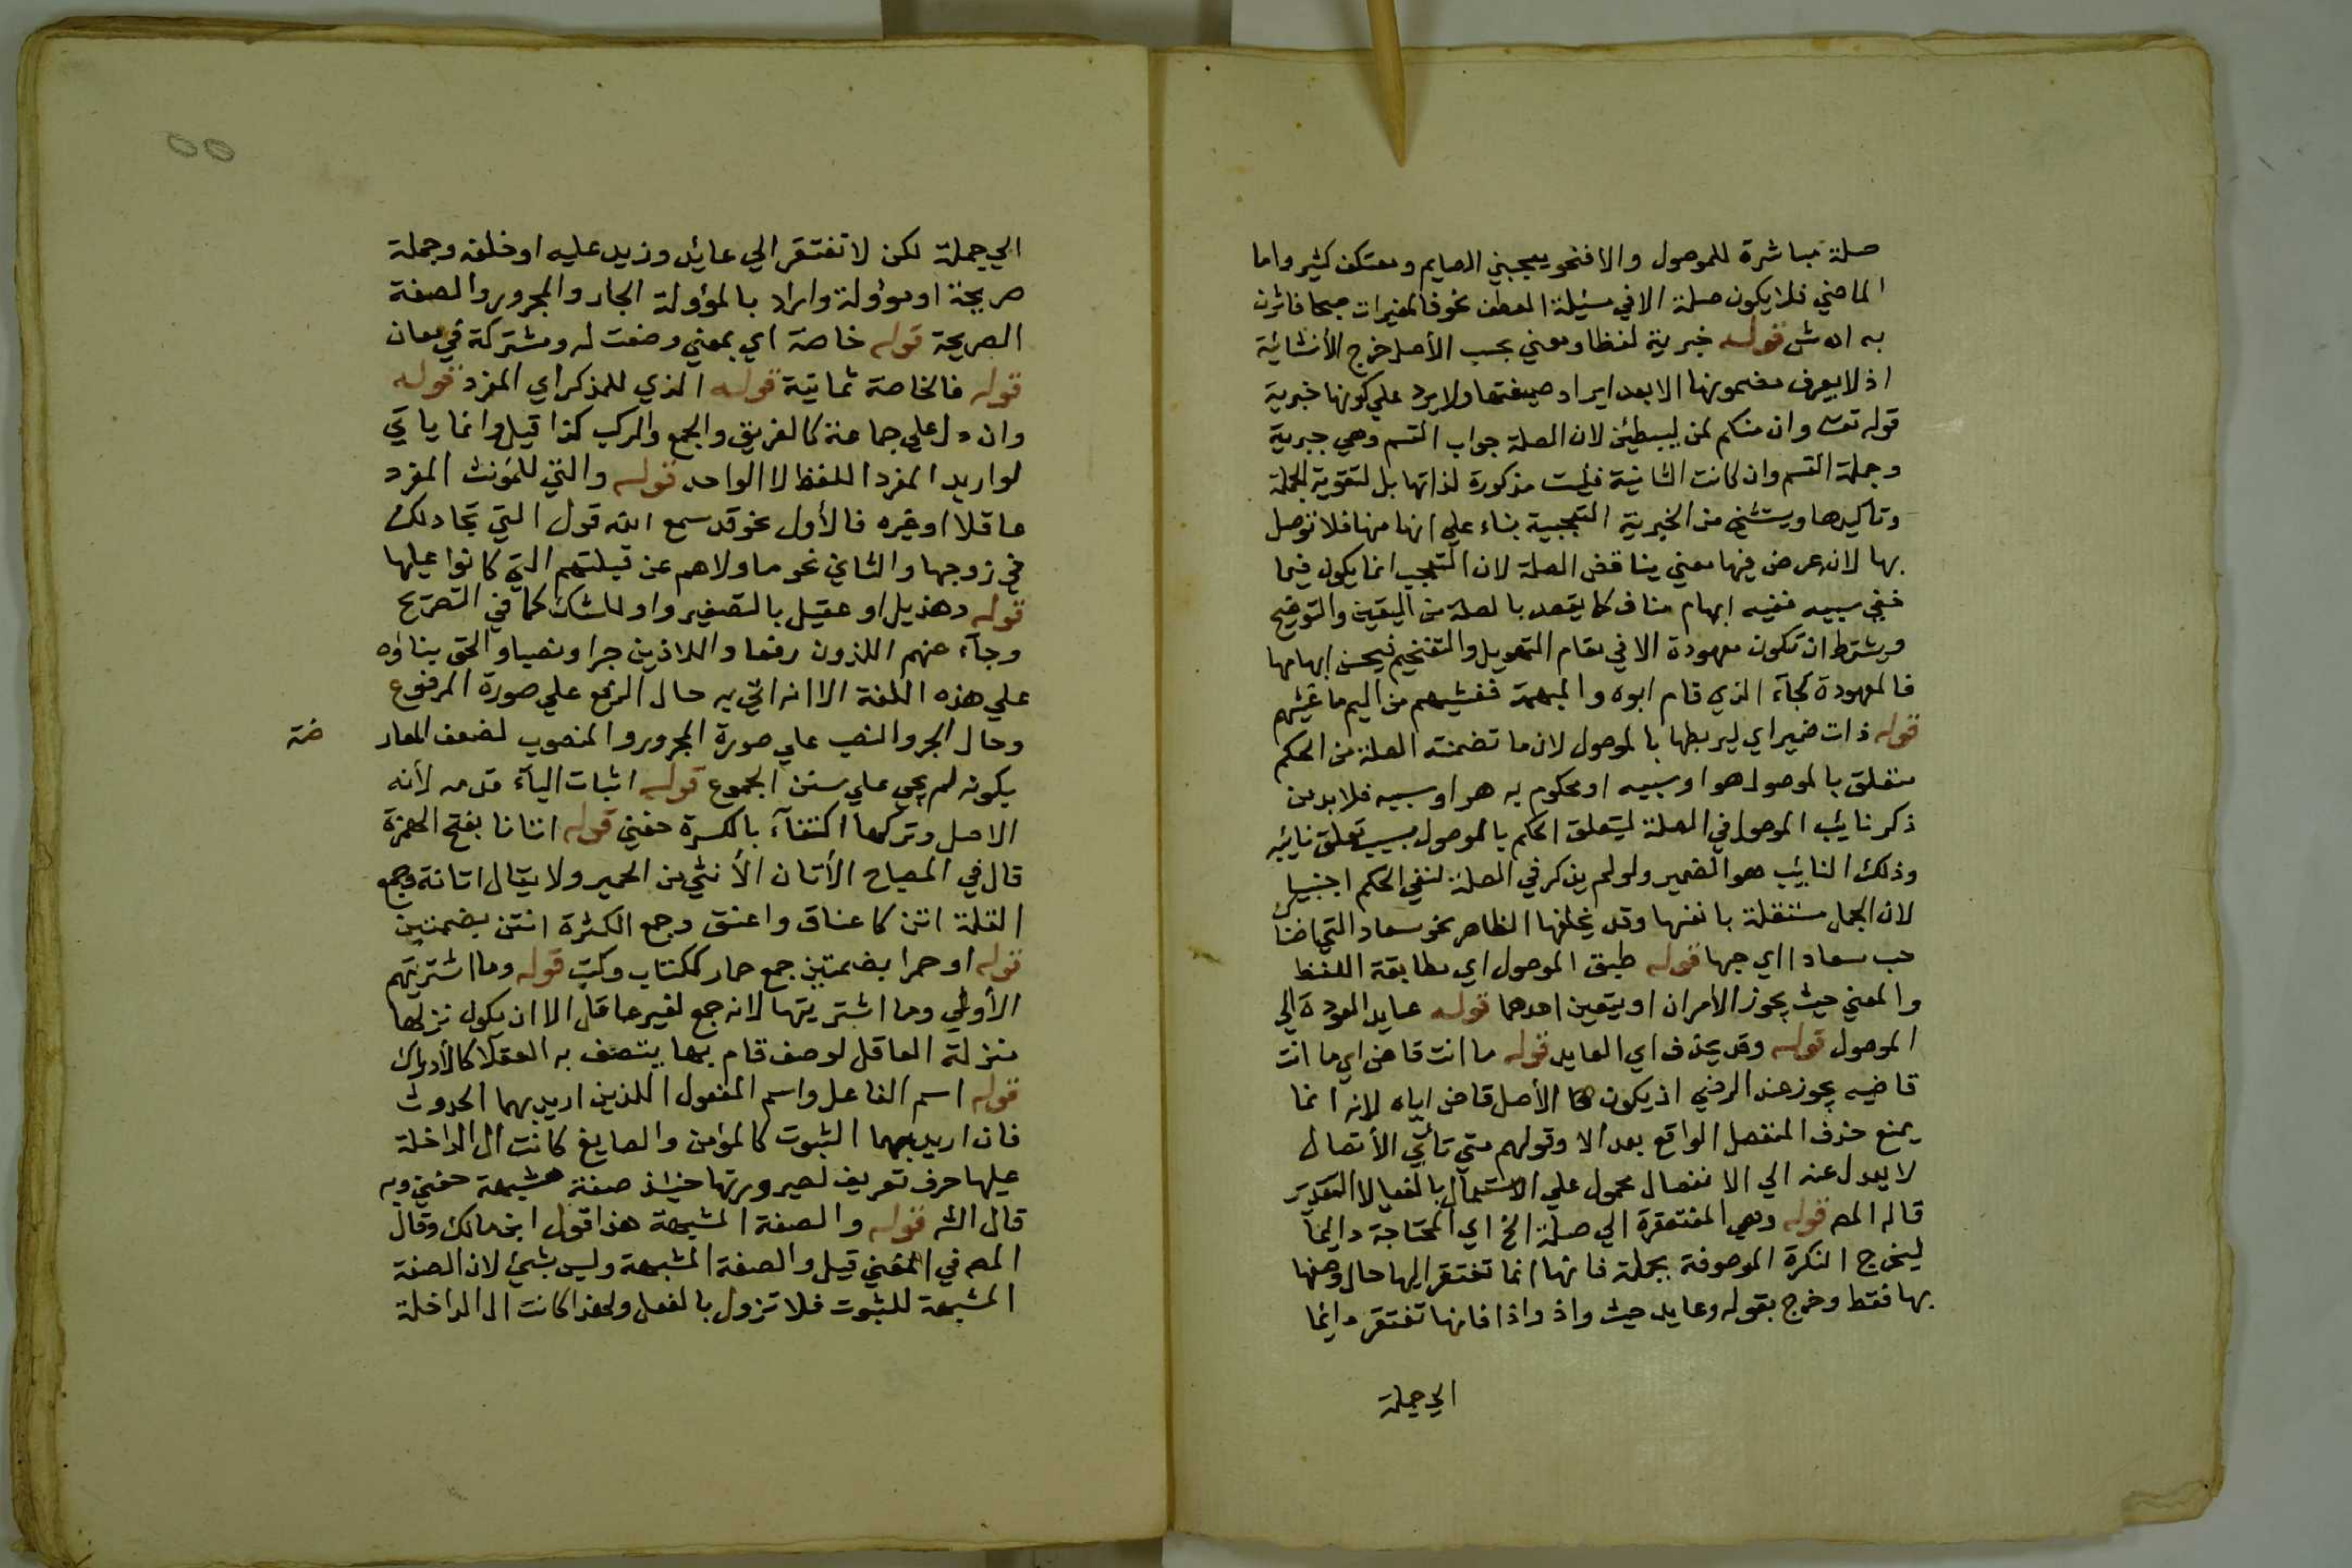 صلة مباشرة للموصول والا فنحو يعجبني الصايم ومعتكف كثير واما
الماضي فلا يكون صلة الا في مسئلة العطف نحو فالمغيرات صبحا فاثرن
به اه ش قوله خبرية لفظا ومعني بحسب الأصل خرج الأنشائية
اذ لا يعرف مضمونها الا بعد ايراد صيغتها ولا يرد علي كونها خبرية
قوله تعـ وان منكم لمن ليبطئن لان الصلة جواب القسم وهي خبرية
وجملة القسم وان كانت انشائية فليست مذكورة لذاتها بل لتقوية الجملة
وتاكيدها ويستثني من الخبرية التعجبية بناء علي انها منها فلا توصل
بها لان عرض فيها معني يناقض الصلة لان التعجب انما يكون فيما
خفي سببه ففيه ابهام مناف لما يقصد بالصلة من اليقين والتوضيح
ويشترط ان تكون معهودة الا في مقام التهويل والتفخيم فيحسن ابهامها
فالمعهودة كجآء الذي قام ابوه والمبهمة فغشيهم من اليم ما غشيهم
قوله ذات ضمير اي ليربطها بالموصول لان ما تضمنته الصلة من الحكم
متعلق بالموصول هو او سببه او محكوم به هو او سببه فلا بد من
ذكر نائب الموصول في الصلة ليتعلق الحكم بالموصول بسبب تعلق نايئبه
وذلك النايئب هو الضمير ولو لم يذكر في الصلة لبقي الحكم اجنبيا
لان الجمل مستقلة بانفسها وقد يخلفها الظاهر نحو سعاد التي اضنا
حب سعادا اي حبها قوله طبق الموصول اي مطابقة اللفظ
والمعني حيث يجوز الأمران او يتعين احدهما قوله عايد العوده الي
الموصول قوله وقد يحذف اي العايد قوله ما انت قاض اي ما انت
قاضيه يجوز عند الرضي اذ يكون الأصل قاض اياه لانه انما
يمنع حذف المنفصل الواقع بعد الا وقولهم متي تاتي الأتصال
لا يعدل عنه الي الانفصال محمول علي الاستعمال بالفعل لا التقدير
قاله المص قوله وهي المفتقرة الي صلة الخ اي المحتاجة دايما
ليخرج النكرة الموصوفة بجملة فانها انما تفتقر اليها حال وصفها
بها فقط وخرج بقوله وعايد حيث واذ واذا فانها تفتقر دايما
الي جملة
الي جملة لكن لا تفتقر الي عائد وزيد عليه او خلفه وجملة
صريحة او مؤولة واراد بالمؤولة الجار والمجرور والصفة
الصريحة قوله خاصة اي بمعني وضعت له ومشتركة في معان
قوله فالخاصة ثمانية قوله الذي للمذكر اي المفرد قوله
وان دل علي جماعة كالفريق والجمع والركب كذا قيل وانما ياتي
لو اريد المفرد اللفظ لا الواحد قوله والتي للمونث المفرد
عاقلا او غيره فالأول نحو قد سمع الله قول التي تجادلك
في زوجها والثاني نحو ما ولاهم عن قبلتهم التي كانوا عليها
قوله وهذيل او عقيل بالتصغير واو للشك كما في التصريح
وجآء عنهم اللذون رفعا واللاذين جرا ونصبا والحق بناؤه
علي هذه اللغة الا انه اتي به حال الرفع علي صورة المرفوع
وحال الجر والنصب علي صورة المجرور والمنصوب لضعف المعار
ضة
بكونه لم يجي علي سنن الجموع قوله اثبات اليآء قدمه لأنه
الاصل وتركها اكتفآء بالكسرة حفني قوله اتانا بفتح الهمزة
قال في المصباح الأتان الأنثي من الحمير ولا يقال اتانة وجمع
القلة اتن كاعناق واعنق وجمع الكثرة اتن بضمتين
قوله او حمرا بضمتين جمع حمار ككتاب وكتب قوله وما اشتريتهم
الأولي وما اشتريتها لانه جمع لغير عاقل الا ان يكون نزلها
منزلة العاقل لوصف قام بها يتصف به العقلا كالأدراك
قوله اسم الفاعل واسم المفعول اللذين اريد بهما الحدوث
فان اريد بهما الثبوت كالمؤمن والصايغ كانت ال الداخلة
عليها حرف تعريف لصيرورتها حينئذ صفة مشبهة حفني وبه
قال الشـ قوله والصفة المشبهة هذا قول ابن مالك وقال
المص في المغني قيل والصفة المشبهة وليس بشئ لان الصفة
المشبهة للثبوت فلا تزول بالفعل ولهذا كانت ال الداخلة